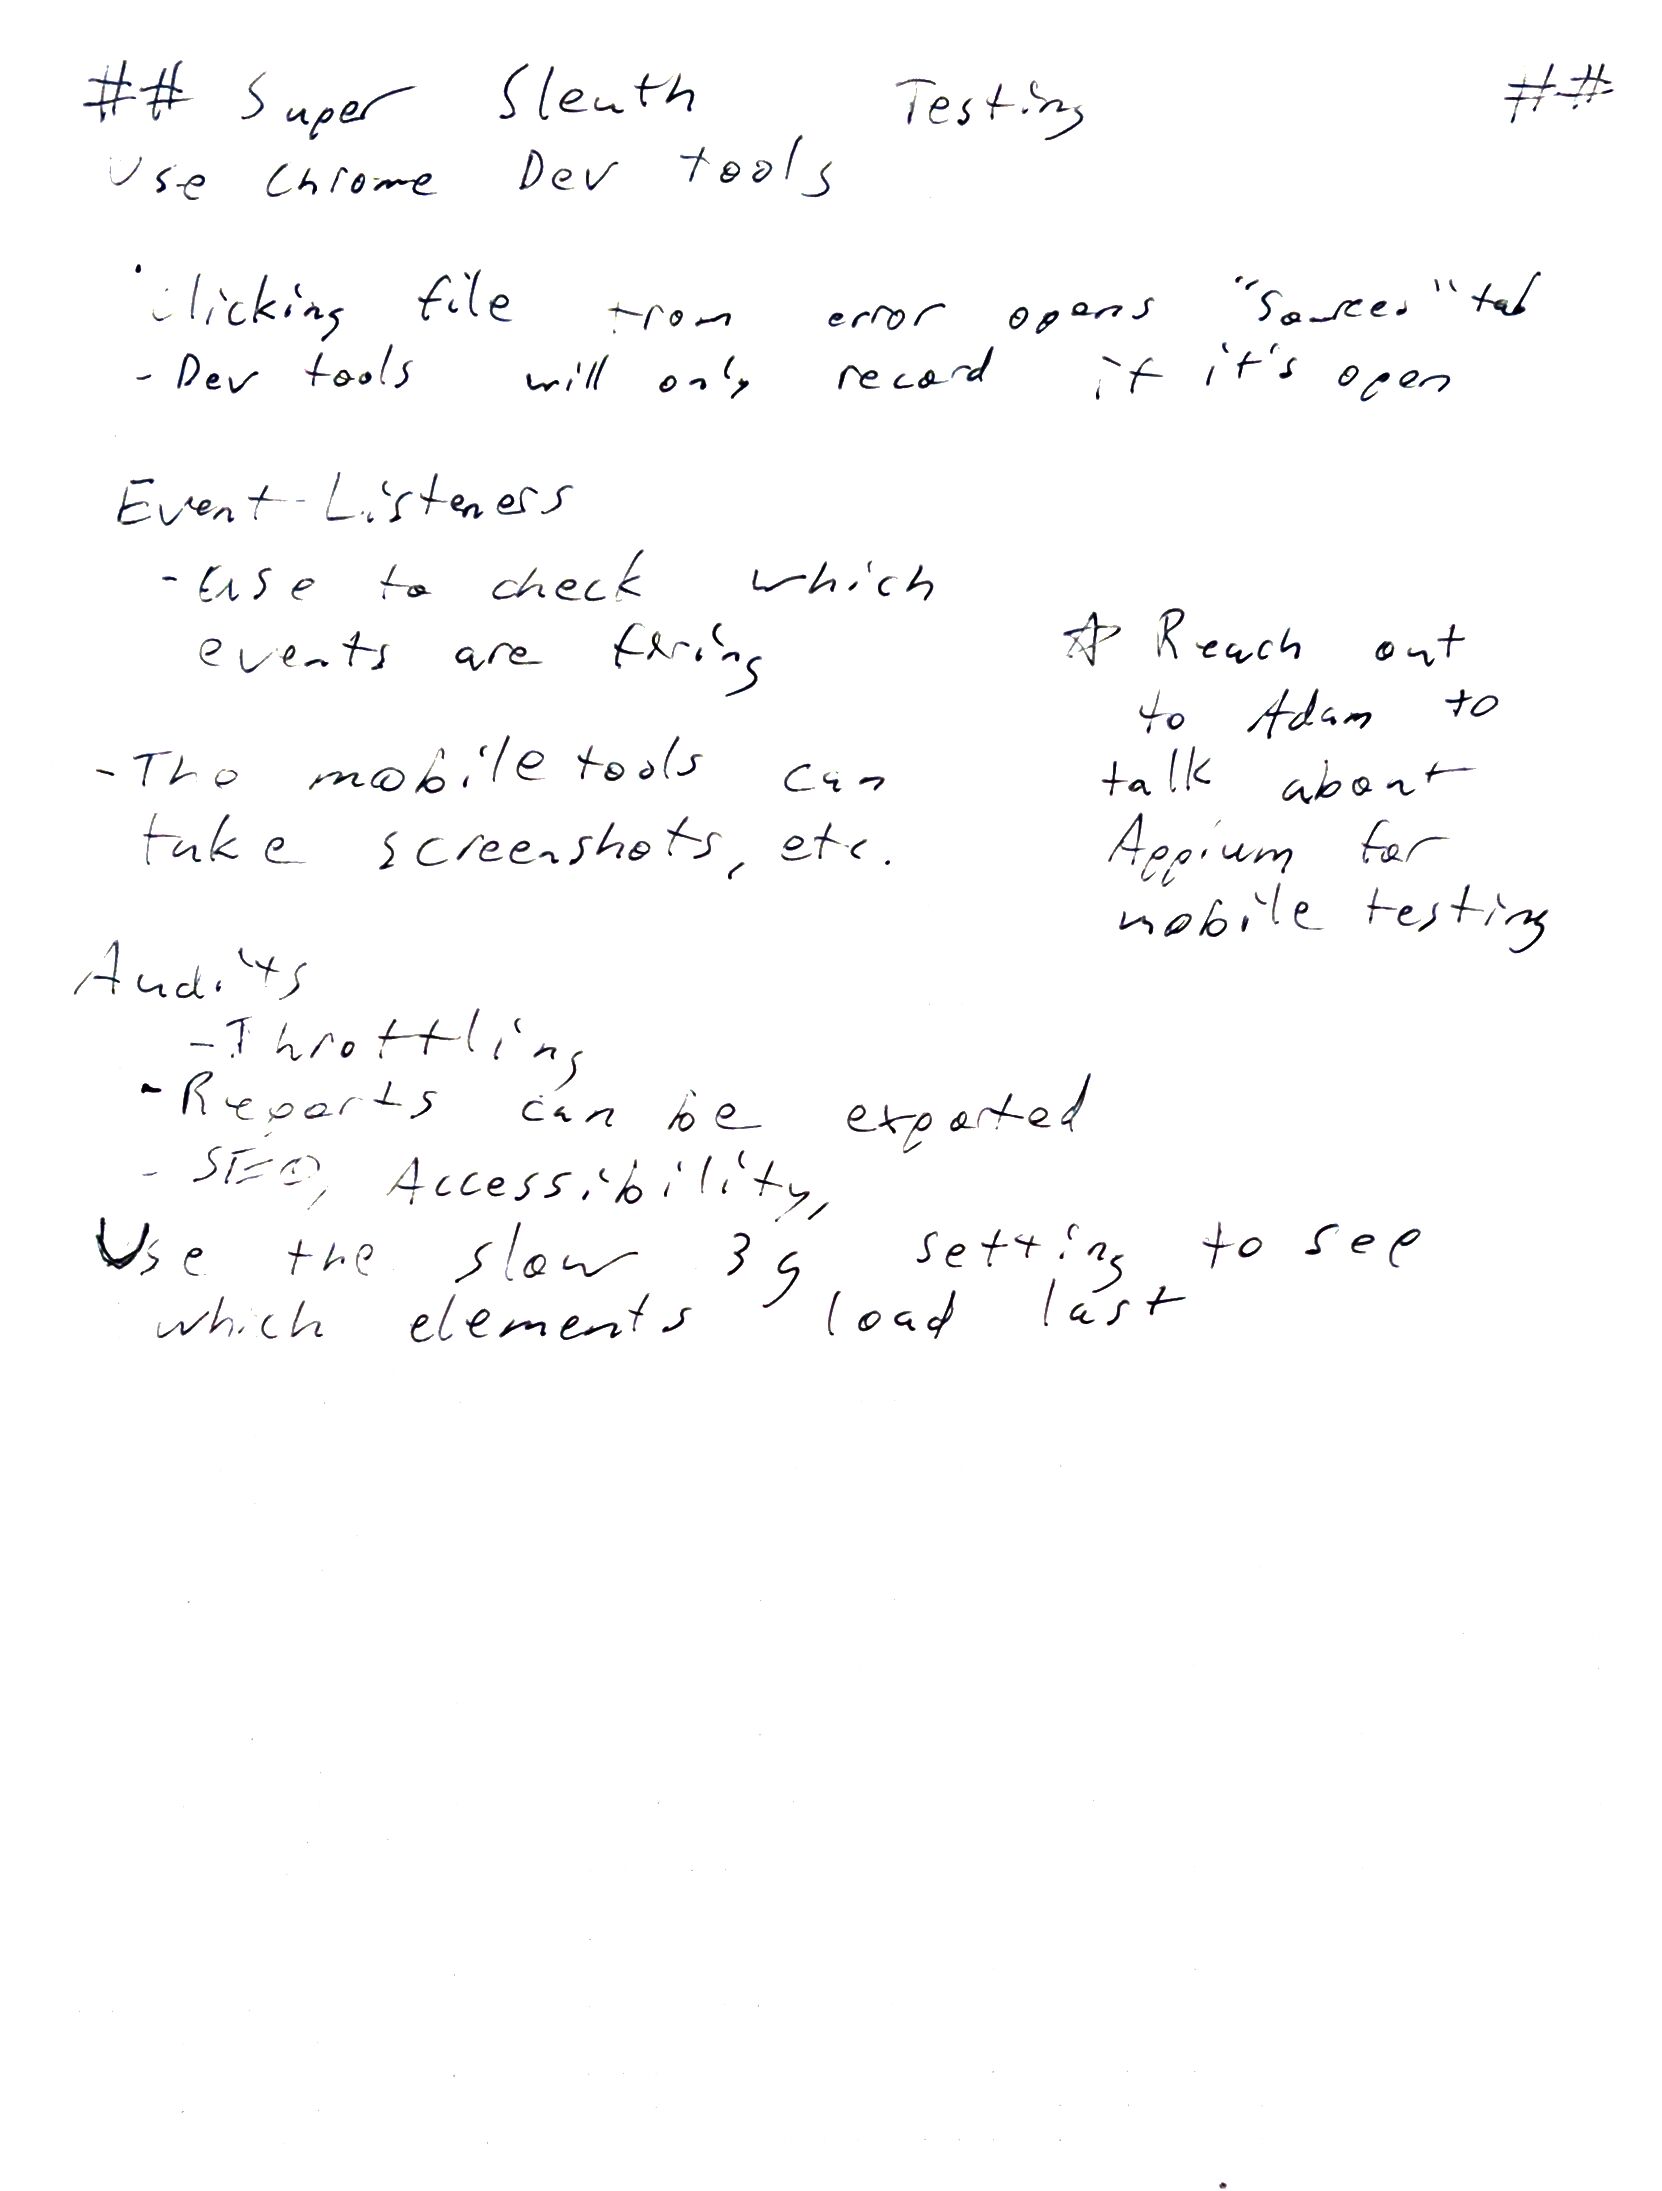 ## Super Sleuth Testing ##
Use Chrome Dev tools
Clicking file from error opens "Sources" tab
- Dev tools will only record if it's open
Event-Listeners
- use to check which
events are firing
- The mobile tools can
take screenshots, etc.
☆ Reach out
to Adam to
talk about
Appium for
mobile testing
Audits
- Throttling
- Reports can be exported
- SEO, Accessibility,
Use the slow 3g setting to see
which elements load last